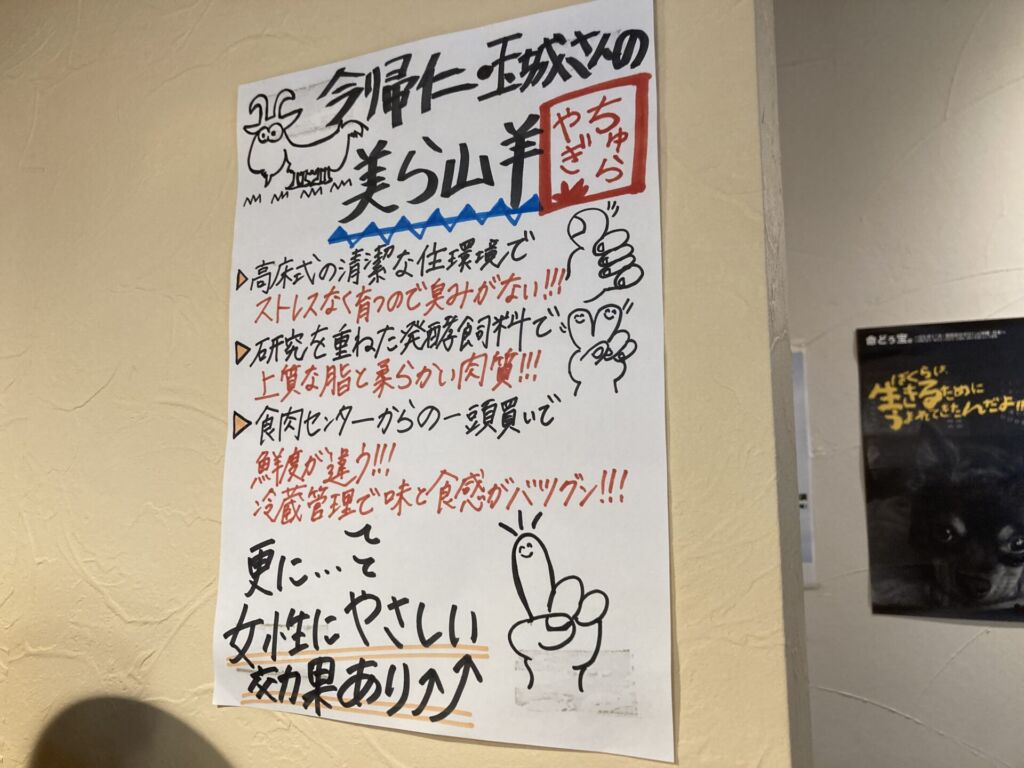 今帰仁・玉城さんの
美ら山羊
ちゅら
やぎ
▶高床式の清潔な住環境で
ストレスなく育つので臭みがない!!!
▶研究を重ねた発酵飼料で
上質な脂と柔らかい肉質!!!
▶食肉センターからの一頭買いで
鮮度が違う!!!
冷蔵管理で味と食感がバツグン!!!
更に…
女性にやさしい
効果あり↑↑
ぼくらは、
生きるために
うまれてきたんだよ!!